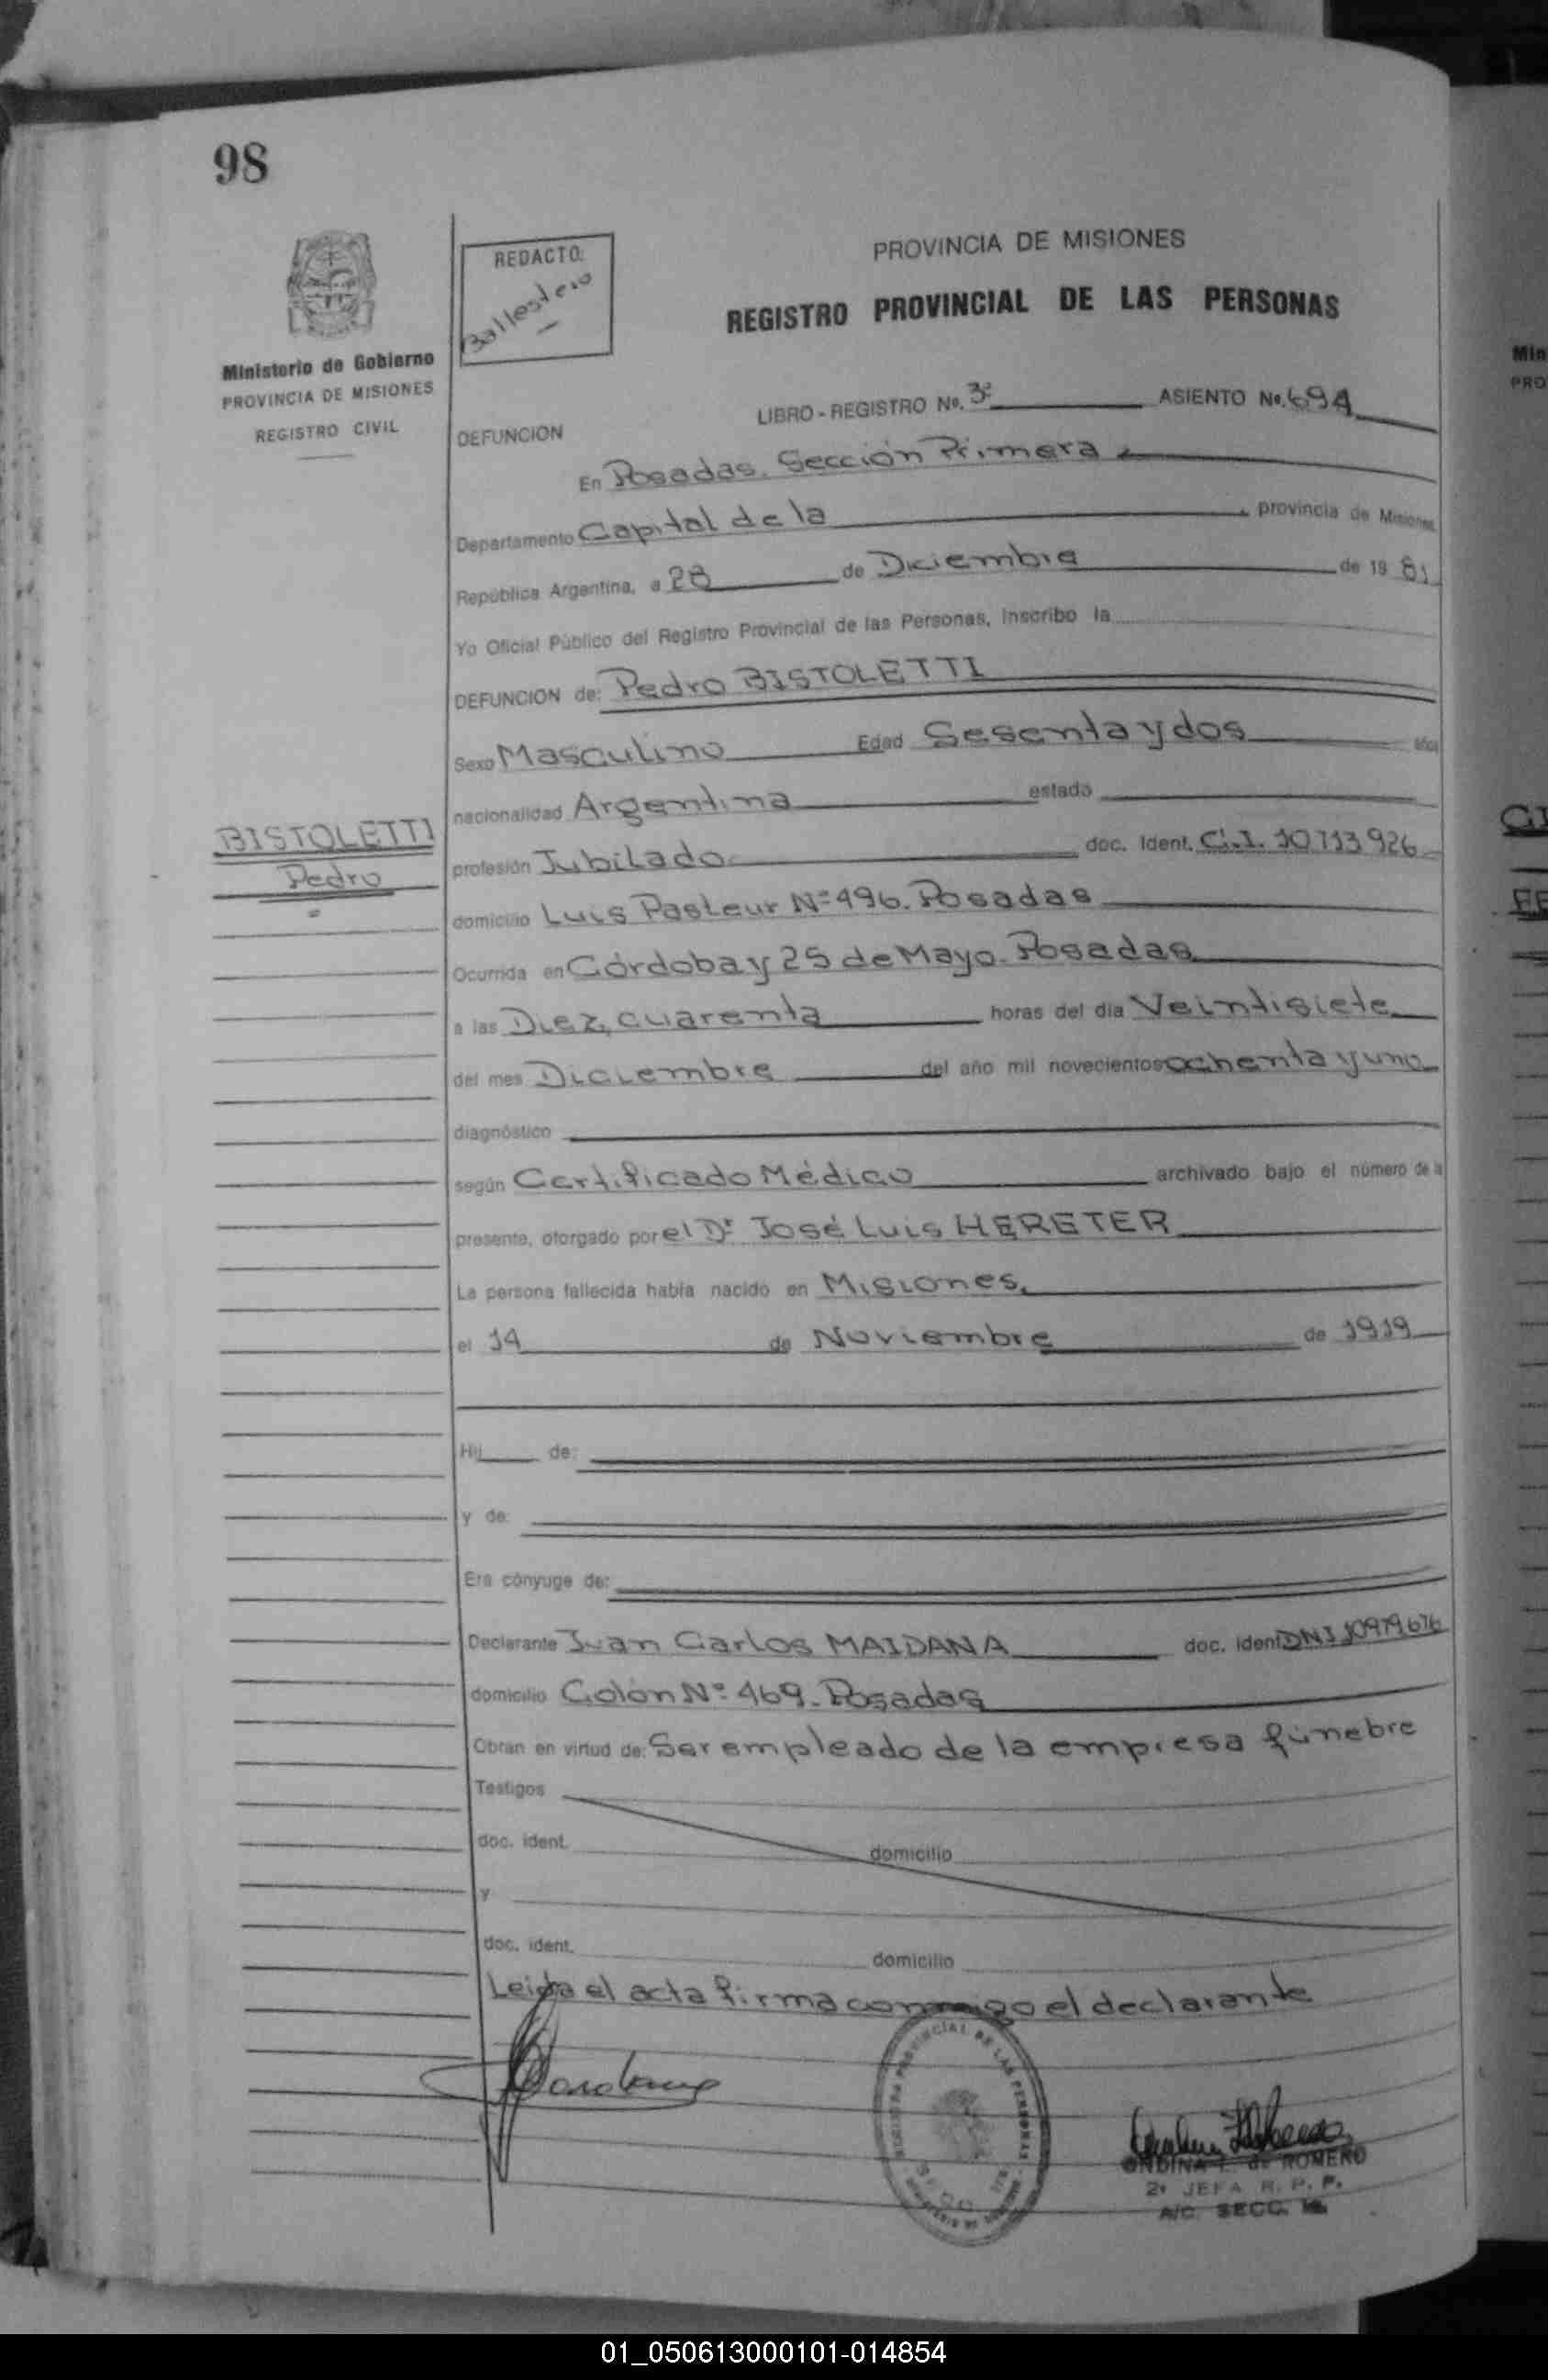 98
REDACTO:
Ballestero
PROVINCIA DE MISIONES
REGISTRO PROVINCIAL DE LAS PERSONAS
Ministerio de Gobierno
PROVINCIA DE MISIONES
REGISTRO CIVIL
LIBRO - REGISTRO No. 3º ASIENTO No. 694
DEFUNCION
En Posadas. Sección Primera
Departamento Capital de la provincia de Misiones,
República Argentina, a 28 de Diciembre de 19 81
Yo Oficial Público del Registro Provincial de las Personas, inscribo la
DEFUNCION de: Pedro BISTOLETTI
Sexo Masculino Edad Sesenta y dos años
nacionalidad Argentina estado
BISTOLETTI
Pedro
profesión Jubilado doc. Ident. C.I. 10713926
domicilio Luis Pasteur Nº 496. Posadas
Ocurrida en Córdoba y 25 de Mayo. Posadas
a las Diez, cuarenta horas del día Veintisiete
del mes Diciembre del año mil novecientos ochenta y uno
diagnóstico
según Certificado Médico archivado bajo el número de la
presente, otorgado por el Dr. José Luis HERETER
La persona fallecida había nacido en Misiones,
el 14 de Noviembre de 1919
Hij de:
y de:
Era cónyuge de:
Declarante Juan Carlos MAIDANA doc. ident DNI 10979676
domicilio Colón Nº 469. Posadas
Obran en virtud de: Ser empleado de la empresa fúnebre
Testigos
doc. ident. domicilio
y
doc. ident. domicilio
Leida el acta firma conmigo el declarante
REGISTRO PROVINCIAL DE LAS PERSONAS
DE ROMERO
2ª JEFA R. P. P.
A/C. SECC. 1a.
Min
PRO
01_050613000101-014854